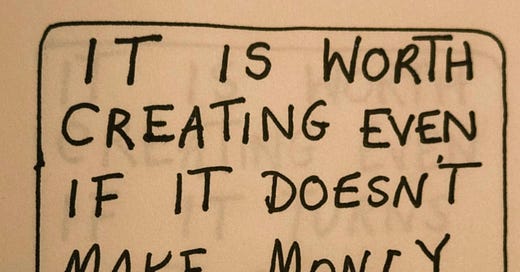 IT IS WORTH
CREATING EVEN
IF IT DOESN'T
MAKE MONEY